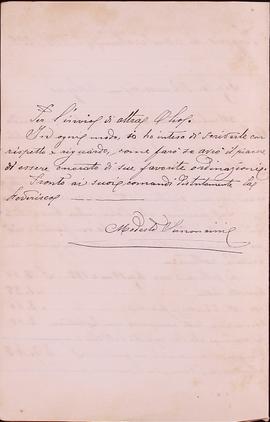 Per l'invio di altra Chop.
In ogni modo, io ho inteso di servirle con
rispetto e riguardo, come farò se avrò il piacere
di essere onorato di sue favorite ordinazioni, e
Pronto ai suoi comandi distintamente La
Riverisco
Modesto